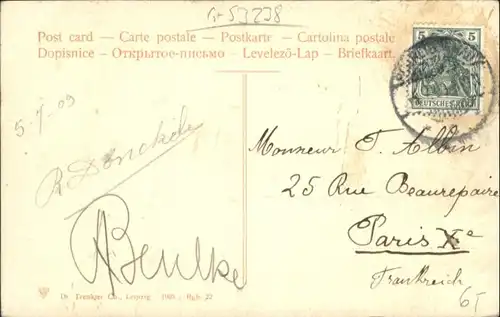 G-53238
Post card — Carte postale — Postkarte — Cartolina postale
Dopisnice — Открытое-письмо — Levelező-Lap — Briefkaart.
5 5
DEUTSCHES REICH
5-7-09
Monsieur T. Albin
25 Rue Beaurepaire
Paris Xe
Frankreich
A Beulke
Dr. Trenkler Co., Leipzig 1905
65